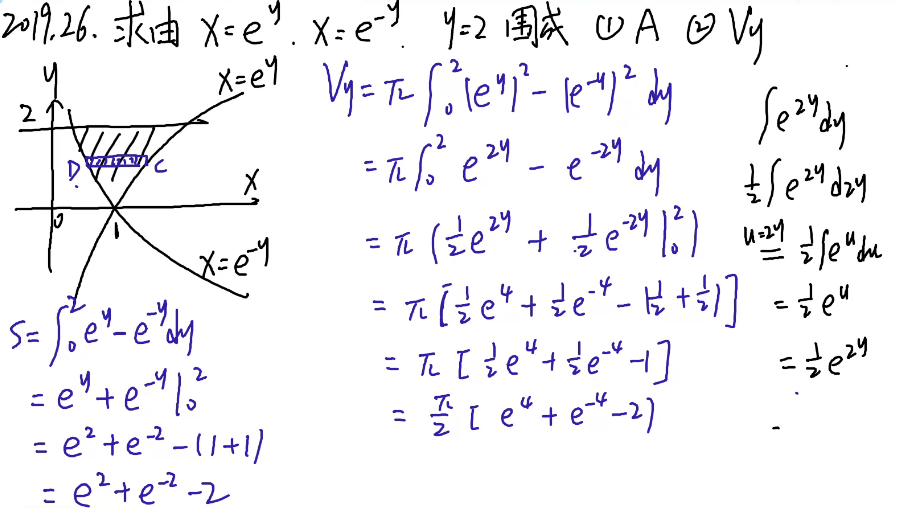 2019.26. 求由 x=e^y. x=e^-y. y=2 围成 ① A ② Vy
y
x=e^y
2
D
C
x
0
1
x=e^-y
S=∫₀² e^y-e^-y dy
=e^y+e^-y|₀²
=e²+e^-2-(1+1)
=e²+e^-2-2
Vy=π∫₀²(e^y)²-(e^-y)² dy
=π∫₀² e^2y - e^-2y dy
=π(½e^2y + ½e^-2y|₀²)
=π[½e⁴+½e^-4-(½+½)]
=π[½e⁴+½e^-4-1]
=π/2[e⁴+e^-4-2]
∫e^2y dy
½∫e^2y d2y
u=2y = ½∫e^u du
=½e^u
=½e^2y